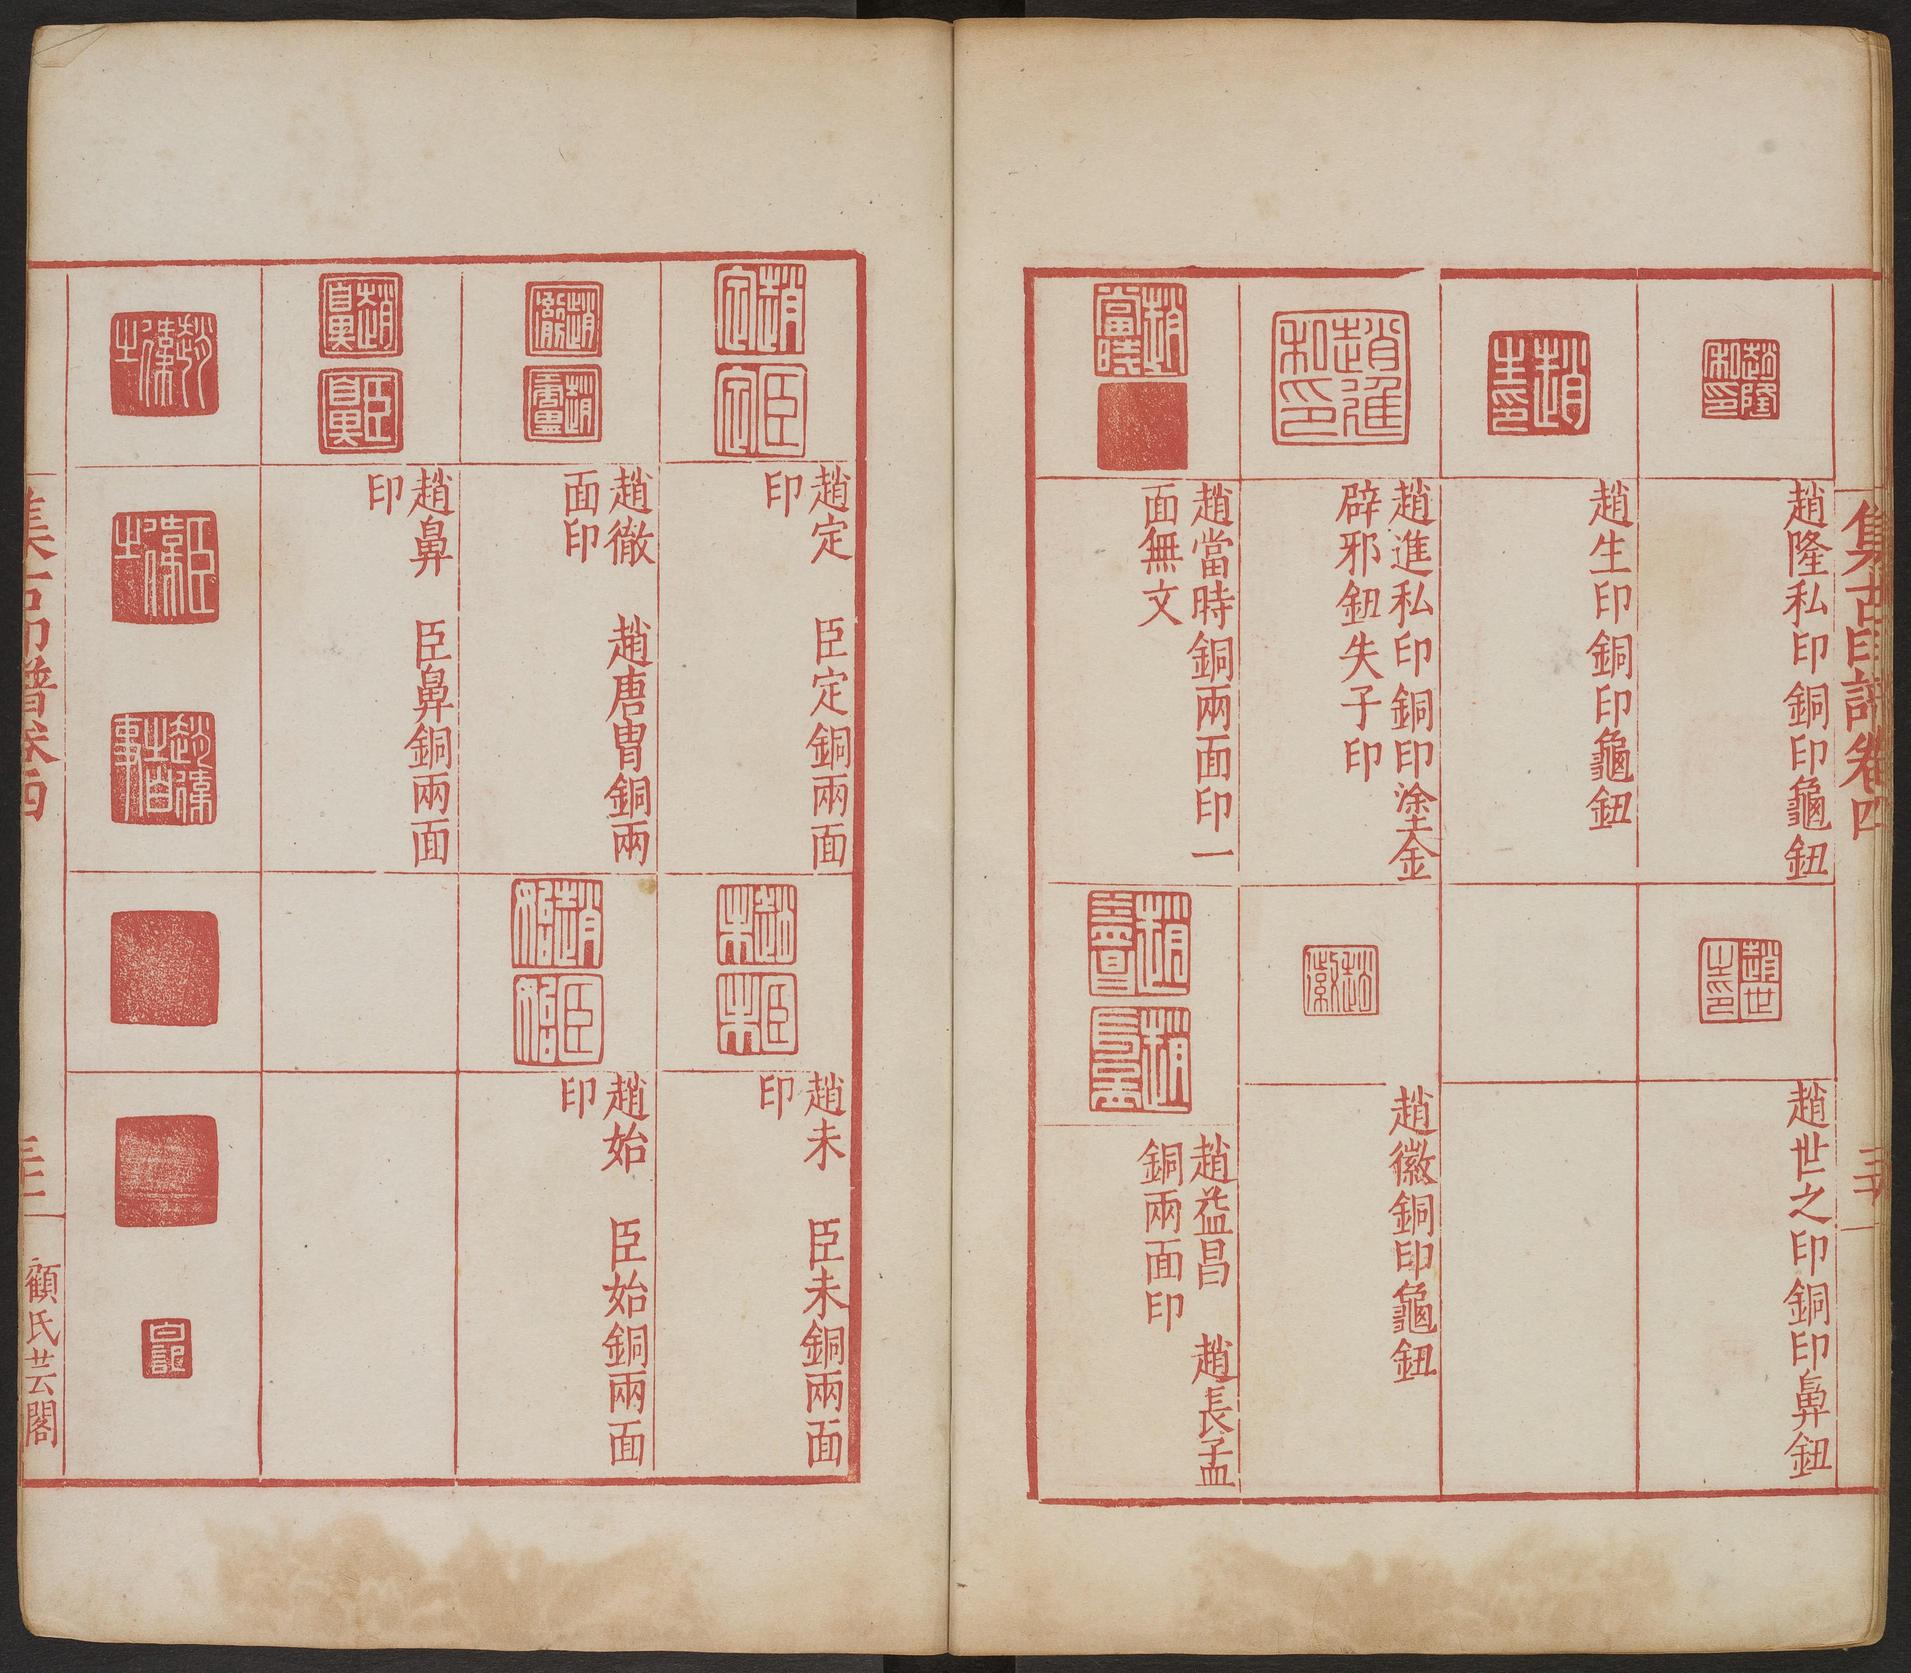 集古印譜卷四
趙隆私印銅印龜鈕
趙世之印銅印鼻鈕
趙生印銅印龜鈕
趙進私印銅印塗金
辟邪鈕失子印
趙徽銅印龜鈕
趙當時銅兩面印一
面無文
趙益昌　趙長孟
銅兩面印
趙定　臣定銅兩面
印
趙未　臣未銅兩面
印
趙徹　趙唐胄銅兩
面印
趙始　臣始銅兩面
印
趙鼻　臣鼻銅兩面
印
集古印譜卷四
顧氏芸閣